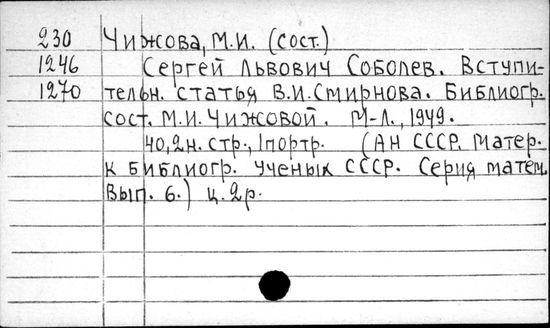 230 Чижова, М.И. (сост.)
1246 Сергей Львович Соболев. Вступи-
1270 тельн. статья В.И.Смирнова. Библиогр.
сост. М.И.Чижовой. М-Л., 1949.
40,2н. стр., 1портр. (АН СССР. Матер.
к библиогр. ученых СССР. Серия матем.
Вып. 6.) ц. 2р.